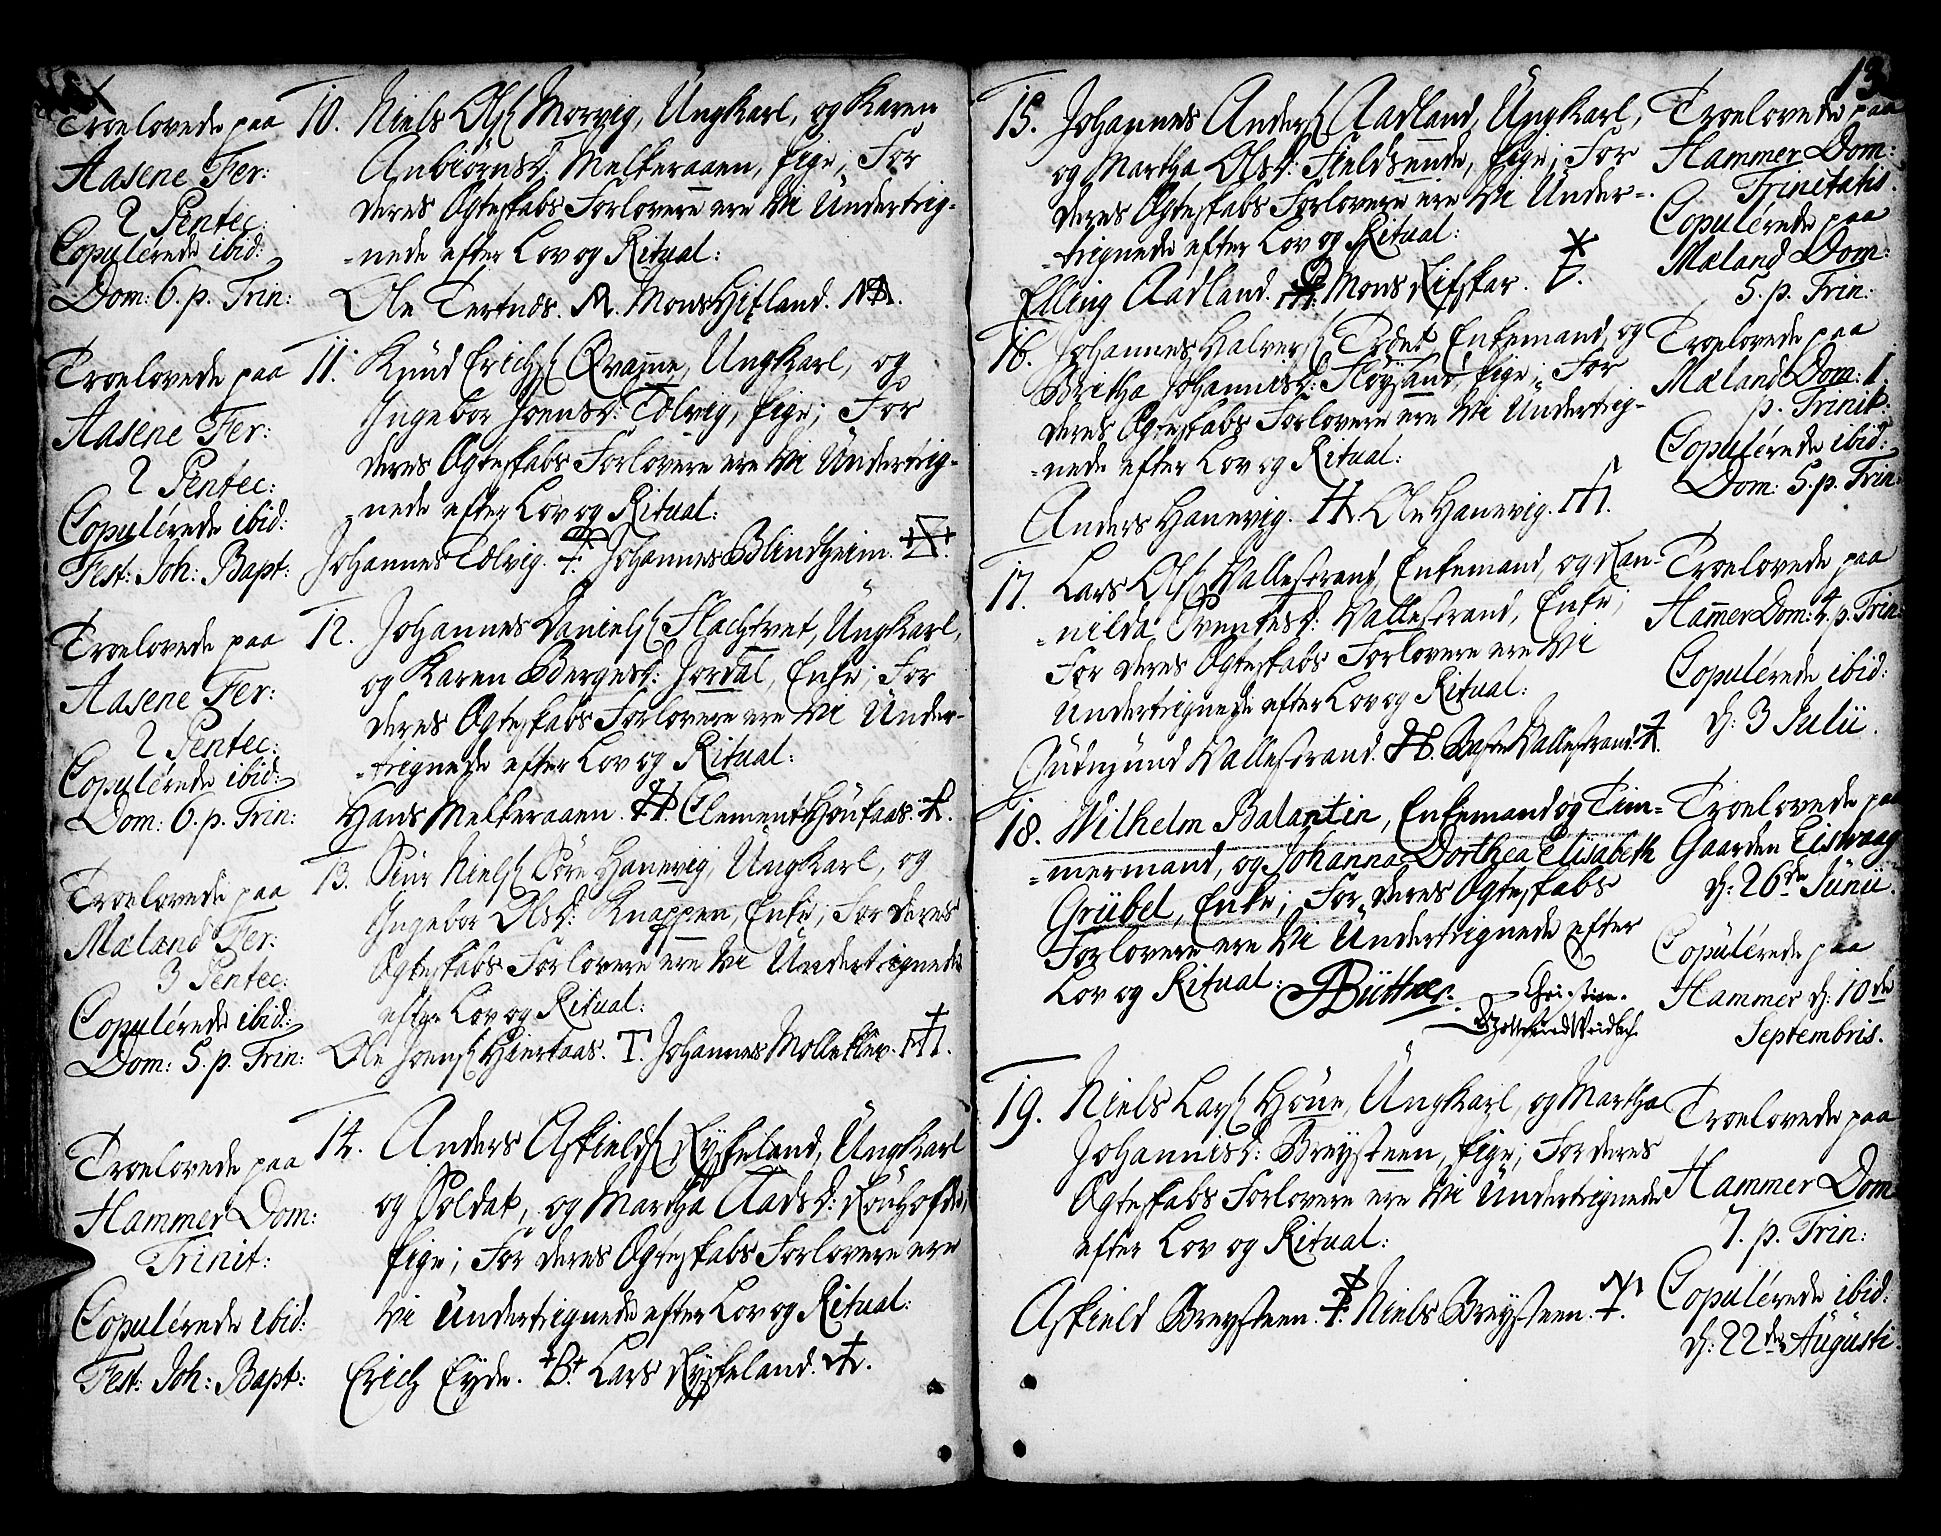 Troelovede paa
Aasene Fer:
2 Pentec:
Copulérede ibid:
Dom: 6. p. Trin:
10. Niels Ols. Morvig, Ungkarl, og Karen
Anbiörnsd: Melkeraaen, Pige; For
deres Ægteskabs Forlovere ere Vi Underteig-
-nede efter Lov og Ritual:
Ole Tertnæs. Mons Hitland.
Troelovede paa
Aasene Fer:
2 Pentec:
Copulérede ibid:
Fest: Joh: Bapt:
11. Knud Erichs. Qvamme, Ungkarl, og
Ingebor Joensd: Tolvig, Pige; For
deres Ægteskabs Forlovere ere Vi Underteig-
-nede efter Lov og Ritual:
Johannes Tolvig. Johannes Blindheim.
Troelovede paa
Aasene Fer:
2 Pentec:
Copulérede ibid:
Dom: 6. p. Trin:
12. Johannes Daniels. Flachtvet, Ungkarl,
og Karen Bergesd: Jordal, Enke; For
deres Ægteskabs Forlovere ere Vi Under-
-teignede efter Lov og Ritual:
Hans Melkeraaen. Clement Höufaas.
Troelovede paa
Mæland Fer:
3 Pentec:
Copulérede ibid:
Dom: 5. p. Trin:
13. Siur Niels. Söre Hanevig, Ungkarl, og
Ingebor Olsd: Knappen, Enke; For deres
Ægteskabs Forlovere ere Vi Underteignede
efter Lov og Ritual:
Ole Joens. Hiertaas. T. Johannes Molleklev.
Troelovede paa
Hammer Dom:
Trinit:
Copulérede ibid:
Fest: Joh: Bapt:
14. Anders Askields. Rÿskeland, Ungkarl
og Soldat, og Martha Aadsd: Rouhofde,
Pige; For deres Ægteskabs Forlovere ere
Vi Underteignede efter Lov og Ritual:
Erich Eyde. B. Lars Rÿskeland.
13
15. Johannes Anders. Aadland, Ungkarl,
og Martha Olsd: Fieldsende, Pige; For
deres Ægteskabs Forlovere ere Vi Under-
-teignede efter Lov og Ritual:
Elling Aadland. Mons Rifskar.
Troelovede paa
Hammer Dom:
Trinitatis.
Copulérede paa
Mæland Dom:
5. p. Trin:
16. Johannes Halvers. Tvedt, Enkemand, og
Britha Johannisd: Flöysand, Pige; For
deres Ægteskabs Forlovere ere Vi Underteig-
-nede efter Lov og Ritual:
Anders Hanevig. Ole Hanevig.
Troelovede paa
Mæland Dom: 1
p. Trinit:
Copulérede ibid:
Dom: 5. p. Trin:
17. Lars Ols. Vallestrand, Enkemand, og Ran-
-nilda Svendsd: Vallestrand, Enke;
For deres Ægteskabs Forlovere ere Vi
Underteignede efter Lov og Ritual:
Gudmund Vallestrand. Vallestrand.
Troelovede paa
Hammer Dom: 4. p. Trin:
Copulérede ibid:
d: 3 Julii.
18. Wilhelm Balantin, Enkemand og Tim-
-mermand, og Johanna Dorthea Elisabeth
Grübel, Enke; For deres Ægteskabs
Forlovere ere Vi Underteignede efter
Lov og Ritual: Büttner. Christian
Troelovede paa
Gaarden Eisvaag
d: 26de Junii.
Copulérede paa
Hammer d: 10de
Septembris.
19. Niels Lars. Höue, Ungkarl, og Martha
Johannisd: Breysteen, Pige; For deres
Ægteskabs Forlovere ere Vi Underteignede
efter Lov og Ritual:
Askield Breysteen. Niels Breysteen.
Troelovede paa
Hammer Dom:
7. p. Trin:
Copulérede ibid:
d: 22de Augusti.